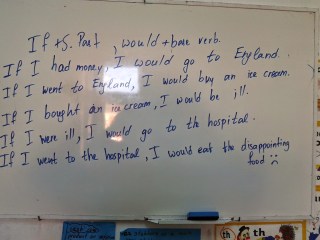 If + S. Past , would + base verb.
If I had money, I would go to England.
If I went to England, I would buy an ice cream.
If I bought an ice cream, I would be ill.
If I were ill, I would go to the hospital.
If I went to the hospital, I would eat the disappointing
food :(
th
th